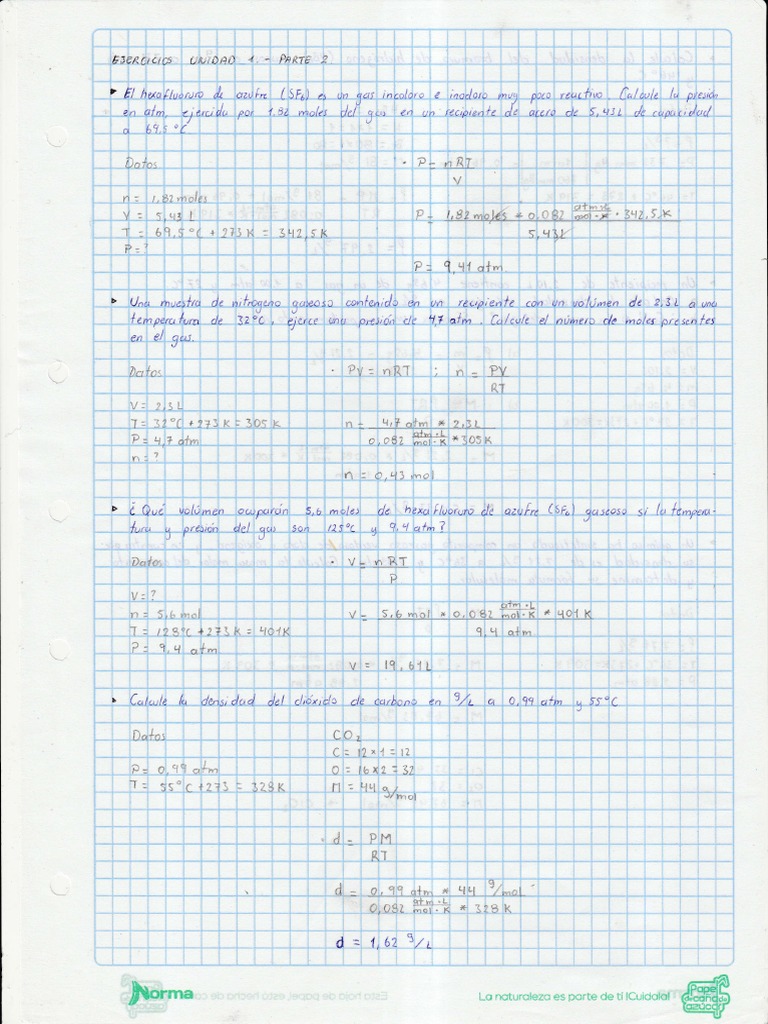 EJERCICIOS UNIDAD 1 - PARTE 2
El hexafluoruro de azufre (SF6) es un gas incoloro e inodoro muy poco reactivo. Calcule la presión
en atm, ejercida por 1.82 moles del gas en un recipiente de acero de 5,43L de capacidad
a 69,5°C
Datos
• P = nRT
V
n = 1,82 moles
V = 5,43 L
T = 69,5°C + 273K = 342,5K
P = ?
P = 1,82 moles * 0,082 atm*L/mol*K * 342,5K
5,43L
P = 9,41 atm.
Una muestra de nitrogeno gaseoso contenido en un recipiente con un volúmen de 2,3L a una
temperatura de 32°C, ejerce una presión de 4,7 atm. Calcule el número de moles presentes
en el gas.
Datos
• PV = nRT ; n = PV
RT
V = 2,3L
T = 32°C + 273K = 305K
P = 4,7 atm
n = ?
n = 4,7 atm * 2,3L
0,082 atm*L/mol*K * 305K
n = 0,43 mol
¿Qué volúmen ocuparán 5,6 moles de hexafluoruro de azufre (SF6) gaseoso si la tempera-
tura y presión del gas son 125°C y 9,4 atm?
Datos
• V = nRT
P
V = ?
n = 5,6 mol
T = 128°C + 273K = 401K
P = 9,4 atm
V = 5,6 mol * 0,082 atm*L/mol*K * 401K
9,4 atm
V = 19,61L
Calcule la densidad del dióxido de carbono en g/L a 0,99 atm y 55°C
Datos
CO2
C = 12*1 = 12
O = 16*2 = 32
M = 44 g/mol
P = 0,99 atm
T = 55°C + 273 = 328K
• d = PM
RT
d = 0,99 atm * 44 g/mol
0,082 atm*L/mol*K * 328K
d = 1,62 g/L
Norma
La naturaleza es parte de tí !Cuidala!
Papel de caña de azúcar